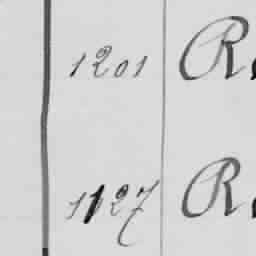 1201 R
1127 R